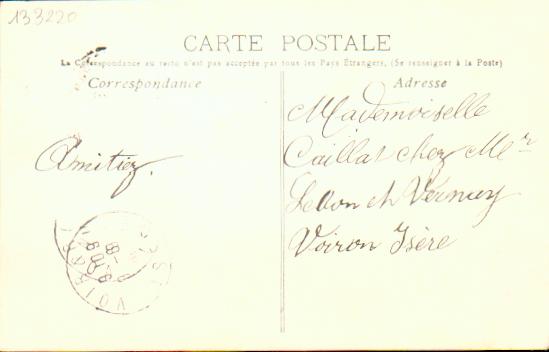 133220
CARTE POSTALE
La Correspondance au recto n'est pas acceptée par tous les Pays Étrangers, (Se renseigner à la Poste)
Correspondance
Adresse
Amitiez.
Mademoiselle
Caillat chez Mr
et Vernuy
Voiron Isère
VOIRON